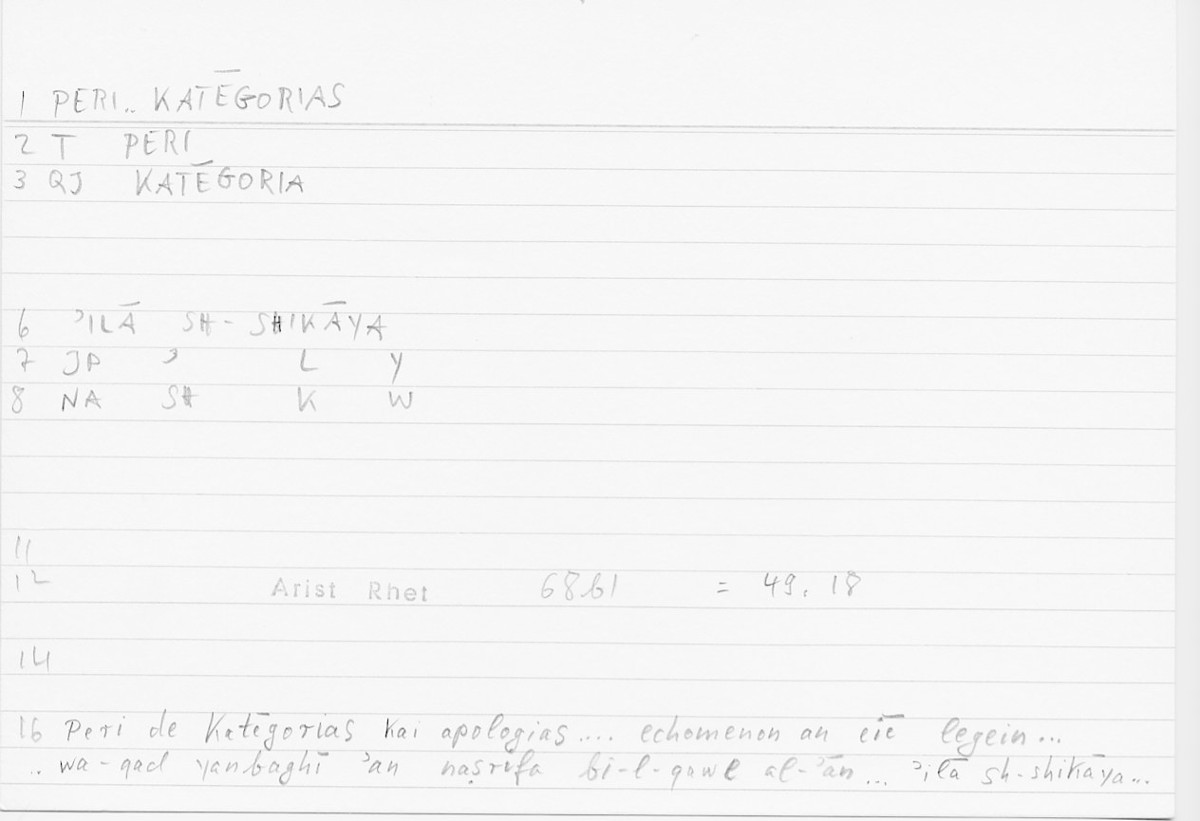 1 PERI.. KATĒGORIAS
2 T PERI
3 QJ KATĒGORIA
6 ʾILĀ SH- SHIKĀYA
7 JP ʾ L Y
8 NA SH K W
11
12 Arist Rhet 68b1 = 49. 18
14
16 Peri de Katēgorias kai apologias.... echomenon an eiē legein...
.. wa-qad yanbaghī ʾan naṣrifa bi-l-qawl al-ʾān... ʾilā sh-shikāya...